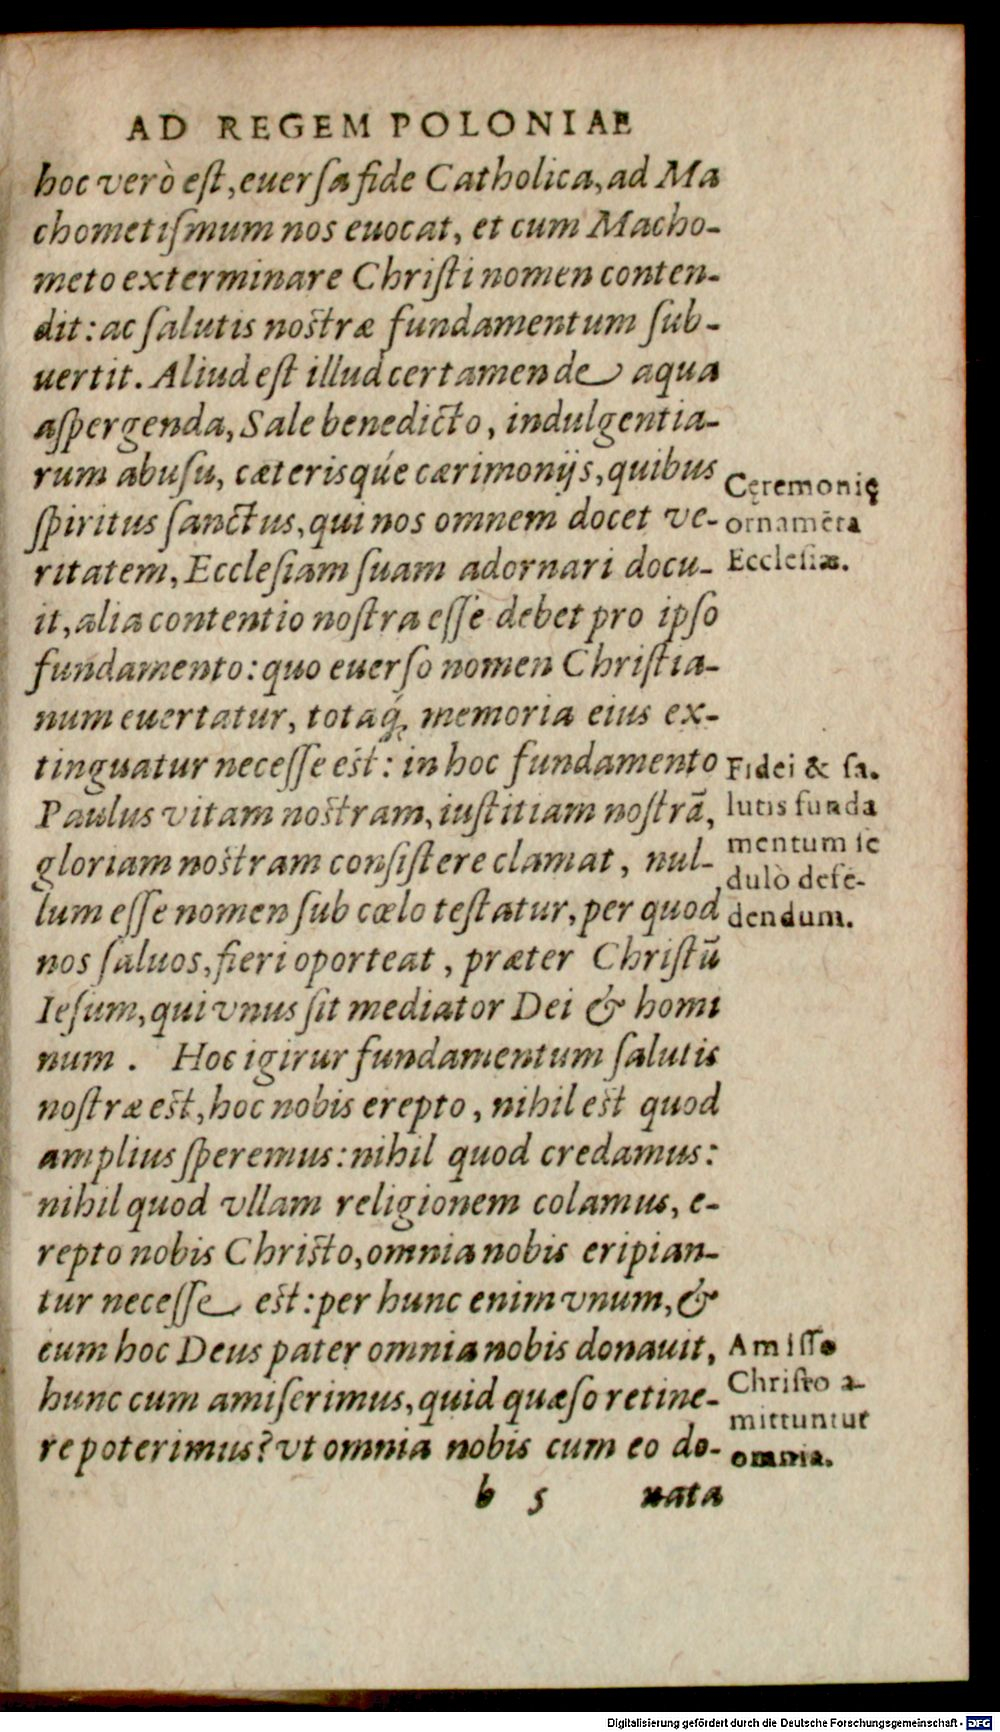 AD REGEM POLONIAE
hoc verò eſt, euerſa fide Catholica, ad Ma
chometiſmum nos euocat, et cum Macho-
meto exterminare Chriſti nomen conten-
dit: ac ſalutis noſtræ fundamentum ſub-
uertit. Aliud eſt illud certamen de aqua
aſpergenda, Sale benedicto, indulgentia-
rum abuſu, cæterisque cærimonijs, quibus
ſpiritus ſanctus, qui nos omnem docet ve-
ritatem, Eccleſiam ſuam adornari docu-
it, alia contentio noſtra eſſe debet pro ipſo
fundamento: quo euerſo nomen Chriſtia-
num euertatur, totaq́; memoria eius ex-
tinguatur neceſſe eſt: in hoc fundamento
Paulus vitam noſtram, iuſtitiam noſtrā,
gloriam noſtram conſiſtere clamat, nul-
lum eſſe nomen ſub cœlo teſtatur, per quod
nos ſaluos, fieri oporteat, præter Chriſtū
Ieſum, qui vnus ſit mediator Dei & homi
num. Hoc igirur fundamentum ſalutis
noſtræ eſt, hoc nobis erepto, nihil eſt quod
amplius ſperemus: nihil quod credamus:
nihil quod vllam religionem colamus, e-
repto nobis Chriſto, omnia nobis eripian-
tur neceſſe eſt: per hunc enim vnum, &
cum hoc Deus pater omnia nobis donauit,
hunc cum amiſerimus, quid quæſo retine-
re poterimus? vt omnia nobis cum eo do-
b 5 nata
Cęremonię
ornamēta
Eccleſiæ.
Fidei & ſa.
lutis funda
mentum ſe
dulò defē-
dendum.
Amiſſo
Chriſto a-
mittuntur
omnia.
Digitalisierung gefördert durch die Deutsche Forschungsgemeinschaft - DFG